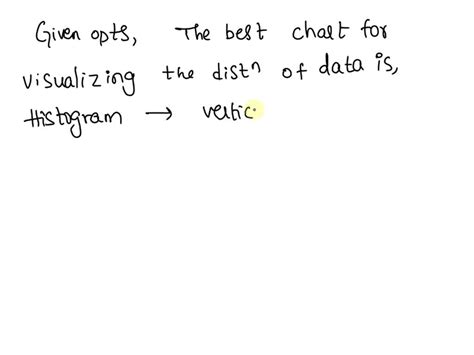 Given opts, The best chart for
visualizing the distⁿ of data is,
Histogram → vertic